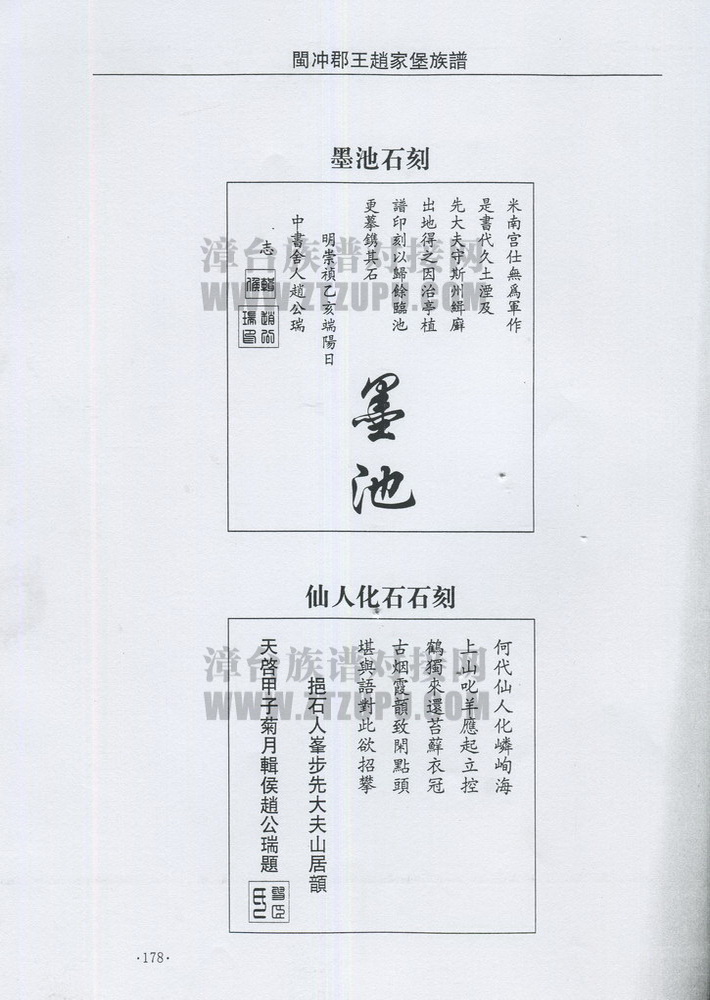 閩冲郡王趙家堡族譜
墨池石刻
米南宫仕無爲軍作
是書代久土湮及
先大夫守斯州緝廨
出地得之因治亭植
譜印刻以歸餘臨池
更摹鐫其石
明崇禎乙亥端陽日
中書舍人趙公瑞
志
輯侯
趙公瑞印
墨池
仙人化石石刻
何代仙人化嶙峋海
上山叱羊應起立控
鶴獨來還苔蘚衣冠
古烟霞韻致閑點頭
堪與語對此欲招攀
挹石人峯步先大夫山居韻
天啓甲子菊月輯侯趙公瑞題
漳台族谱对接网
WWW.ZTZUPU.COM
漳台族谱对接网
WWW.ZTZUPU.COM
·178·